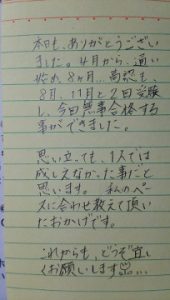 本日も、ありがとうござい
ました。4月から、通い
始め8ヶ月、高認も、
8月、11月と2回受験
し、今回無事合格する
事ができました。
思い立っても、1人では
成しえなかった事だと
思います。私のペー
スに合わせ教えて頂い
たおかげです。
これからも、どうぞ宜し
くお願いします☺...